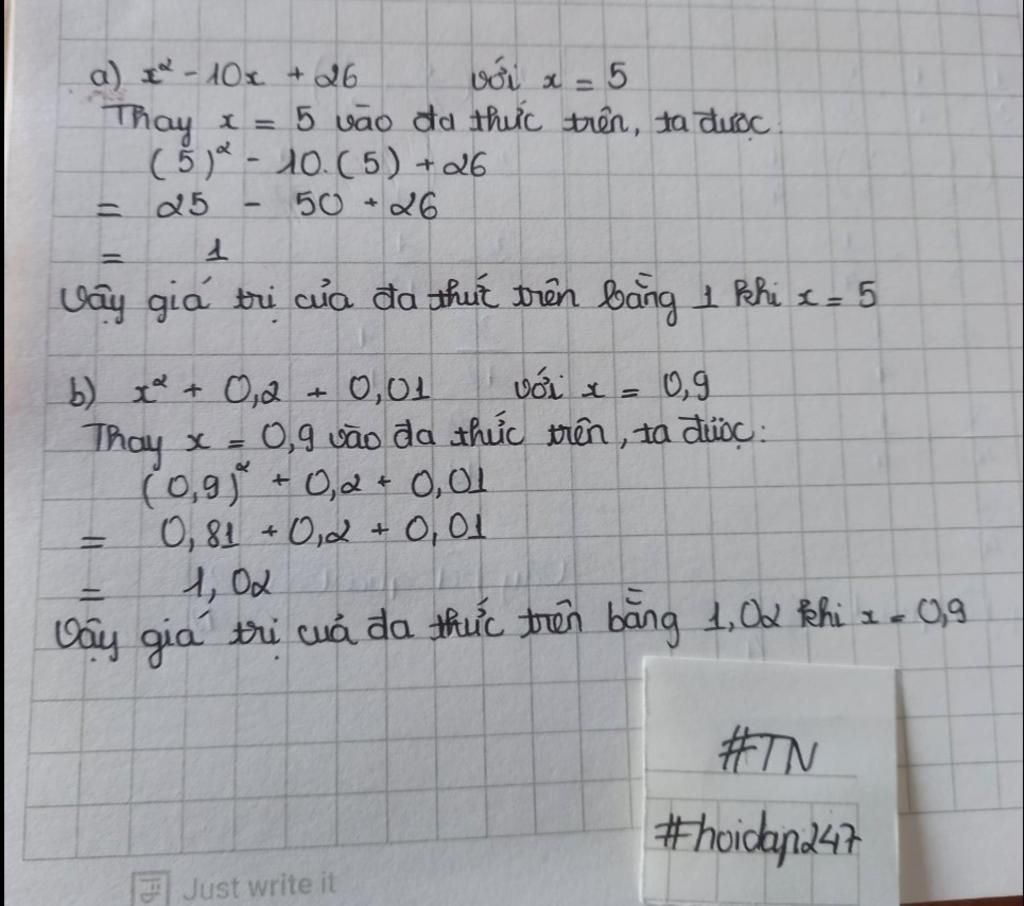 a) x² - 10x + 26 với x = 5
Thay x = 5 vào đa thức trên, ta được:
(5)² - 10.(5) + 26
= 25 - 50 + 26
= 1
Vậy giá trị của đa thức trên bằng 1 khi x = 5
b) x² + 0,2 + 0,01 với x = 0,9
Thay x = 0,9 vào đa thức trên, ta được:
(0,9)² + 0,2 + 0,01
= 0,81 + 0,2 + 0,01
= 1,02
Vậy giá trị cuả đa thức trên bằng 1,02 khi x = 0,9
#TN
#hoidap247
Just write it